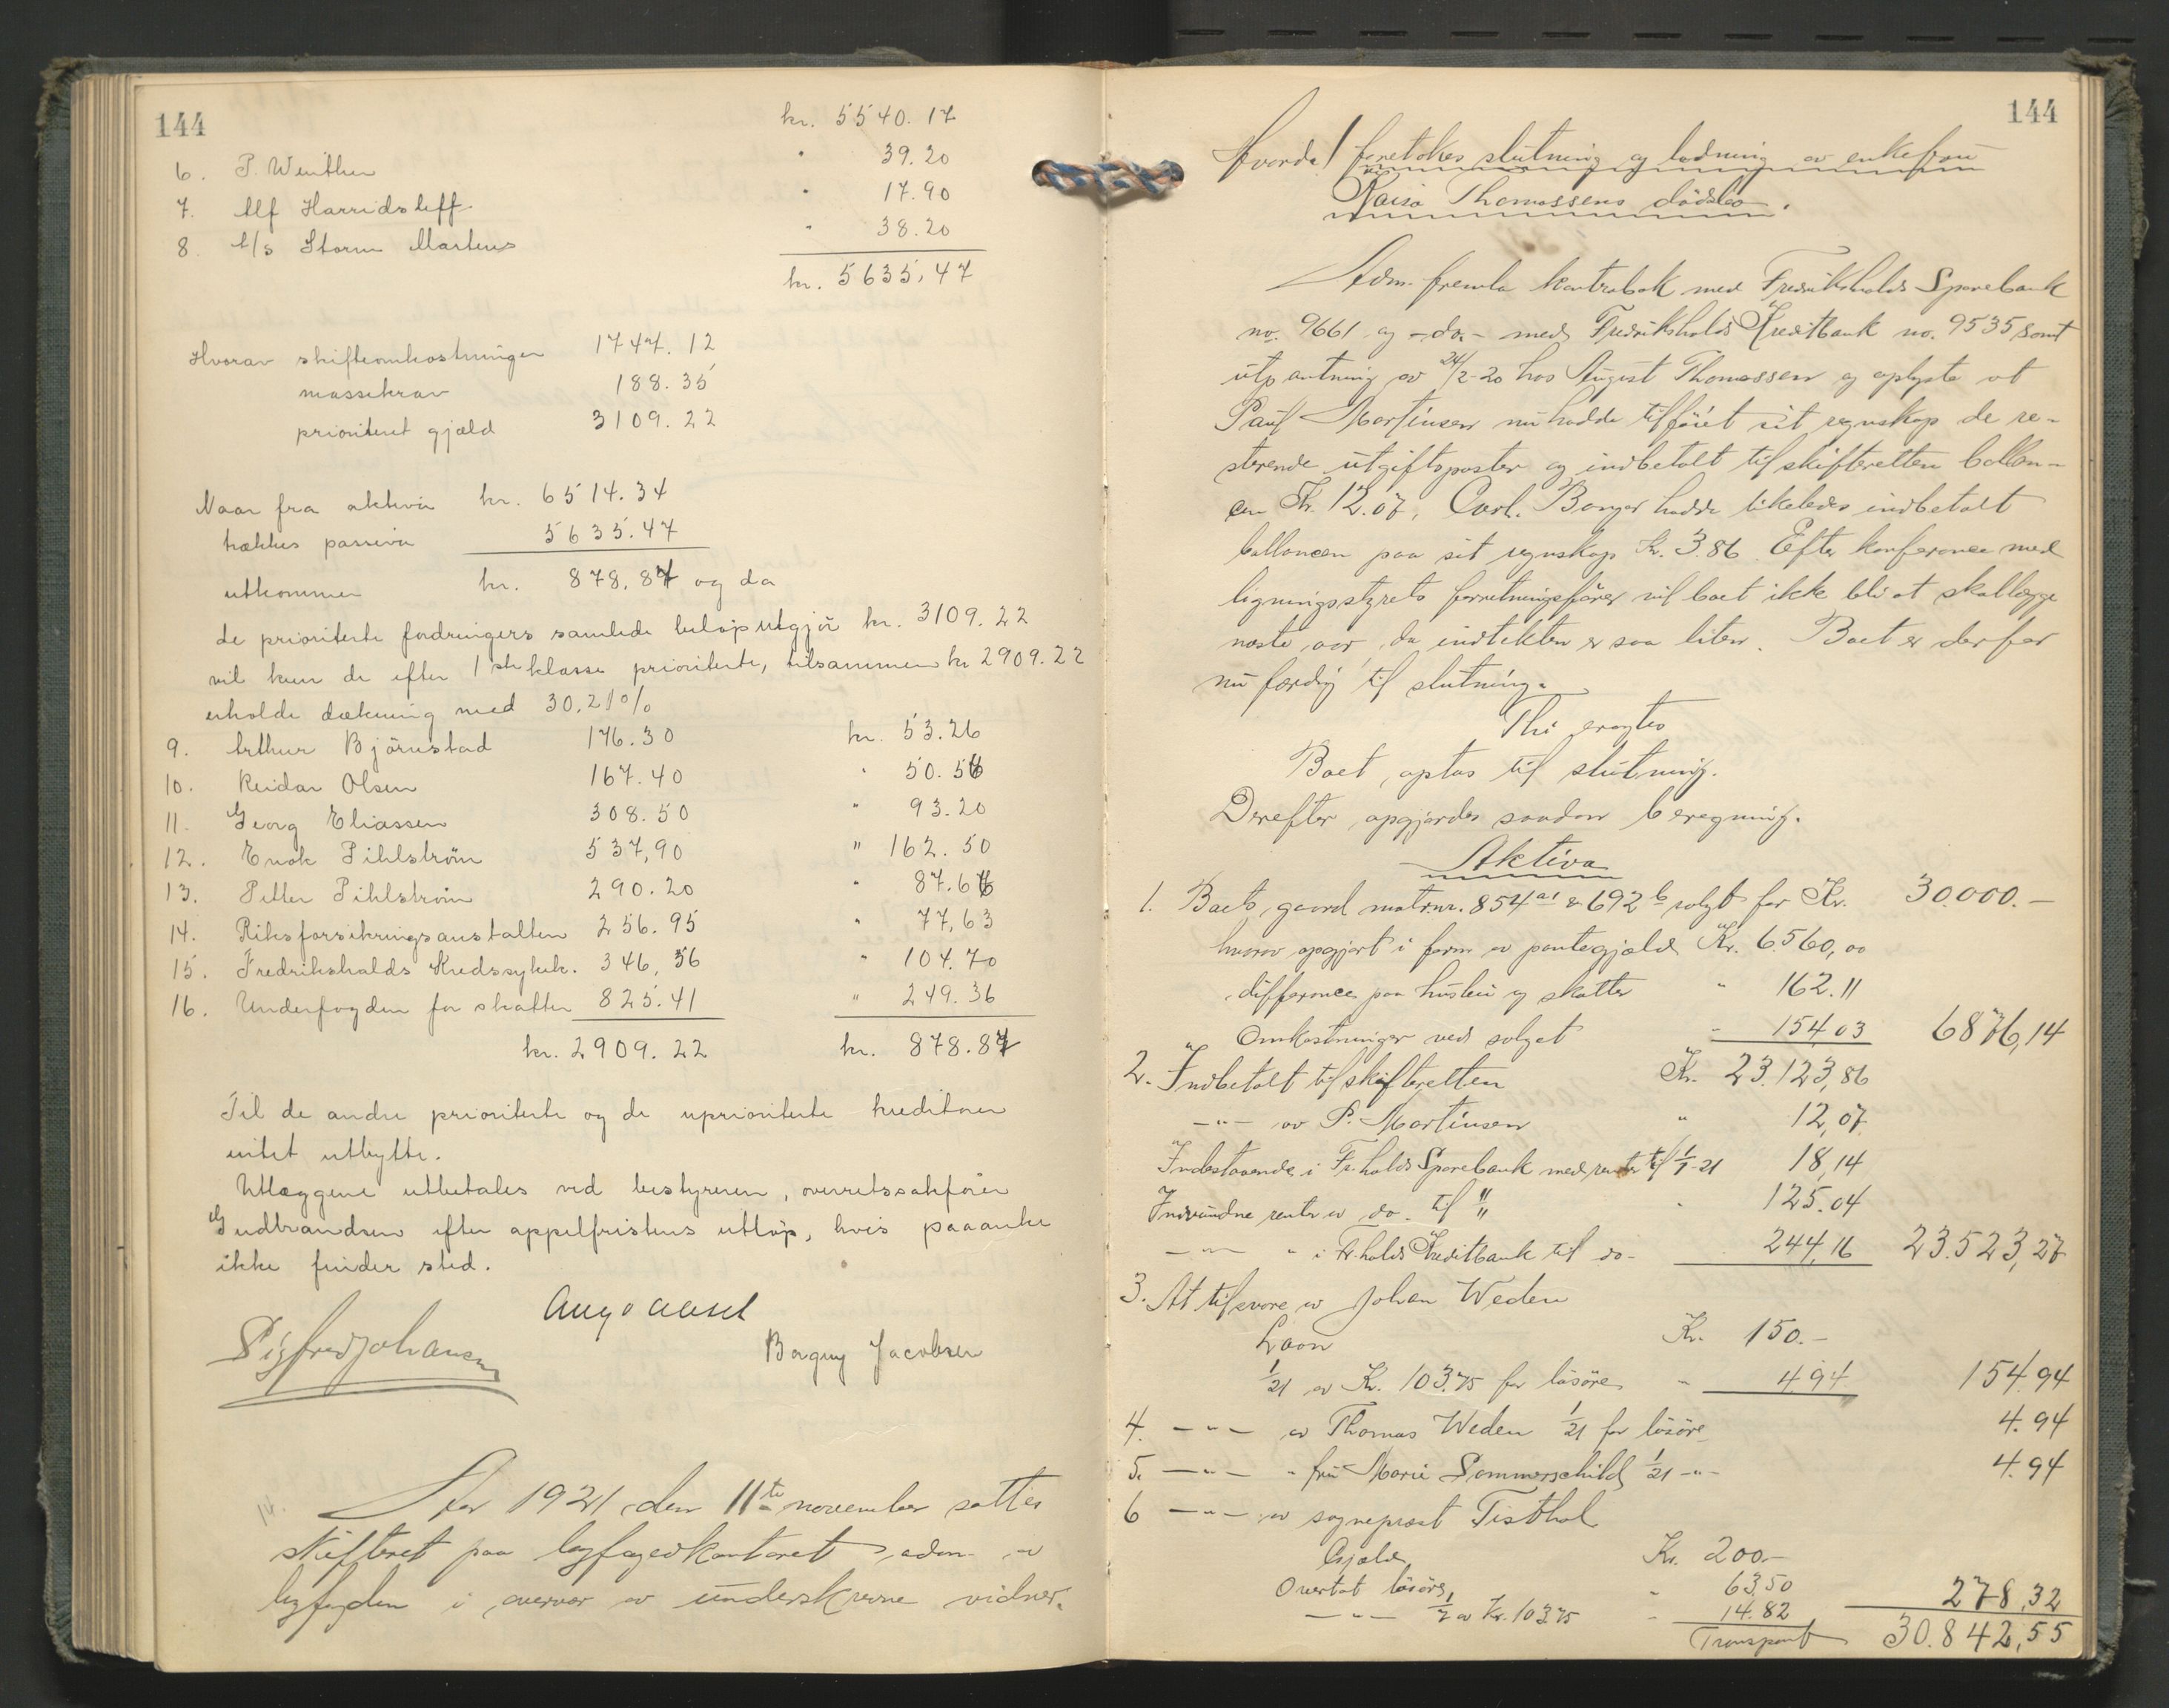 144
kr. 5540.17
6. P. Winther " 39.20
7. Alf Harridsleff " 17.90
8. A/s Storm Martens " 38.20
kr. 5635,47
Hvorav skifteomkostninger 1747.12
massekrav 188.35
prioritert gjæld 3109.22
Naar fra aktiva kr. 6514.34
trækkes passiva 5635.47
utkommer kr. 878.87 og da
de prioriterte fordringers samlede beløp utgjør kr. 3109.22
vil kun de efter 1ste klasse prioriterte, tilsammen kr 2909.22
erholde dækning med 30.21%
9. Arthur Björnstad 176.30 kr. 53.26
10. Reidar Olsen 167.40 " 50.56
11. Georg Eliassen 308.50 " 93.20
12. Enok Pihlström 537,90 " 162.50
13. Petter Pihlström 290.20 " 87.66
14. Riksforsikringsanstalten 256.95 " 77,63
15. Fredrikshalds Kredssykek. 346,56 " 104.70
16. Underfogden for skatter 825.41 " 249.36
kr. 2909.22 kr. 878.87
Til de andre prioriterte og de uprioriterte kreditorer
intet utbytte.
Utlæggene utbetales ved bestyreren, overretssakfører
Gudbrandsen efter appelfristens utløp, hvis paaanke
ikke finder sted.
Aug Aasel
Sigfred Johansen Borguy Jacobsen
Aar 1921 den 11te november sattes
skifteret paa byfogedkontoret adm. av
byfogden i overvær av underskrevne vidner.
144
Hvorda! foretokes slutning og lodning av enkefru
Kaisa Thomassens dødsbo.
Adm. fremla kontrabok med Fredrikshalds Sparebank
no. 9661 og -do.- med Fredrikshalds Kreditbank no. 9535 samt
utpantning av 24/2-20 hos August Thomassen og oplyste at
Paul Martinsen nu hadde tilføiet sit regnskap de re-
sterende utgiftsposter og indbetalt til skifteretten ballan-
cen Kr. 12.07. Carl. Borger hadde likeledes indbetalt
ballancen paa sit regnskap Kr. 3.86. Efter konferance med
ligningsstyrets forretningsfører vil boet ikke bli at skatlægge
næste aar, da indtekten er saa liten. Boet er derfor
nu færdig til slutning.
Thi eragtes
Boet optas til slutning.
Derefter opgjordes saadan beregning.
Aktiva
1. Boets gaard matr.nr. 854a1 & 692b solgt for Kr. 30.000.-
hvorav opgjort i form av pantegjæld Kr. 6560,00
difference paa husleie og skatter " 162.11
Omkostninger ved salget " 154,03 6876,14
2. Indbetalt til skifteretten Kr. 23.123,86
-"- av P. Martinsen " 12,07
Indestaaende i Fr.halds Sparebank med renter til 1/7-21 18,14
Indvundne renter av do. til " " 125.04
-"- " i Fr.halds Kreditbank til do- 244,16 23.523,27
3. At tilsvare av Johan Weden
Laan Kr. 150.-
1/21 av Kr. 103.75 for løsøre " 4.94 154.94
4. -"- av Thomas Weden 1/21 for løsøre 4.94
5. -"- " fru Marie Sommerschild 1/21 -"- 4.94
6 -"- av sogneprest Tisthal
Gjæld Kr. 200.-
Overtat løsøre " 63,50
-"- 1/7 av Kr. 103.75 " 14.82 278,32
Transport 30.842,55